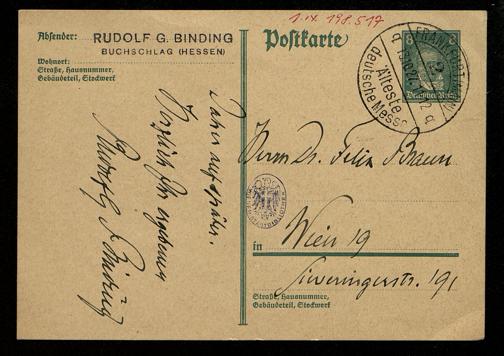 1.IX.198.517
Absender:
RUDOLF G. BINDING
BUCHSCHLAG (HESSEN)
Wohnort:
Straße, Hausnummer,
Gebäudeteil, Stockwerk
Daher auf später.
Herzlich Ihr ergebener
Rudolf G Binding
Postkarte
FRANKFURT (MAIN)
Älteste
deutsche Messe
Deutsches Reich
Herrn Dr. Felix Braun
in
Wien 19
Sieveringerstr. 191
Straße, Hausnummer,
Gebäudeteil, Stockwerk